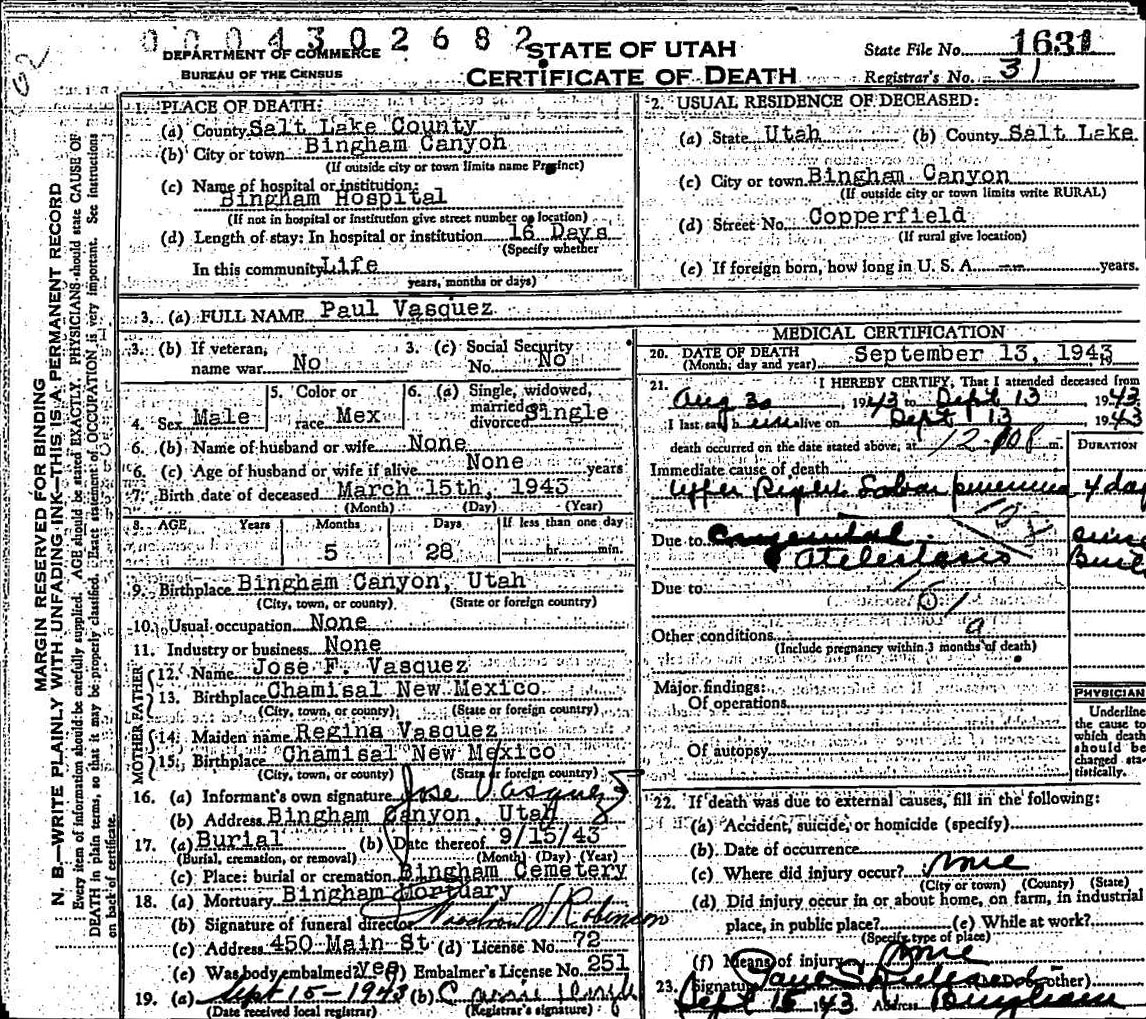 0004302682
DEPARTMENT OF COMMERCE
BUREAU OF THE CENSUS
STATE OF UTAH
CERTIFICATE OF DEATH
State File No. 1631
Registrar's No. 31
MARGIN RESERVED FOR BINDING
N. B.—WRITE PLAINLY WITH UNFADING INK—THIS IS A PERMANENT RECORD
Every item of information should be carefully supplied. AGE should be stated EXACTLY. PHYSICIANS should state CAUSE OF
DEATH in plain terms, so that it may be properly classified. Exact statement of OCCUPATION is very important. See instructions
on back of certificate.
1. PLACE OF DEATH:
(a) County Salt Lake County
(b) City or town Bingham Canyon
(If outside city or town limits name Precinct)
(c) Name of hospital or institution:
Bingham Hospital
(If not in hospital or institution give street number or location)
(d) Length of stay: In hospital or institution 16 Days
(Specify whether
In this community Life
years, months or days)
2. USUAL RESIDENCE OF DECEASED:
(a) State Utah (b) County Salt Lake
(c) City or town Bingham Canyon
(If outside city or town limits write RURAL)
(d) Street No. Copperfield
(If rural give location)
(e) If foreign born, how long in U. S. A. --- years.
3. (a) FULL NAME Paul Vasquez
3. (b) If veteran, name war No
3. (c) Social Security No. No
4. Sex Male
5. Color or race Mex
6. (a) Single, widowed, married or divorced Single
6. (b) Name of husband or wife None
6. (c) Age of husband or wife if alive None years
7. Birth date of deceased March 15th, 1943
(Month) (Day) (Year)
8. AGE Years Months Days If less than one day
5 28 hr. min.
9. Birthplace Bingham Canyon, Utah
(City, town, or county) (State or foreign country)
10. Usual occupation None
11. Industry or business None
FATHER
12. Name Jose F. Vasquez
13. Birthplace Chamisal New Mexico
(City, town, or county) (State or foreign country)
MOTHER
14. Maiden name Regina Vasquez
15. Birthplace Chamisal New Mexico
(City, town, or county) (State or foreign country)
16. (a) Informant's own signature Jose Vasquez
(b) Address Bingham Canyon, Utah
17. (a) Burial (b) Date thereof 9/15/43
(Burial, cremation, or removal) (Month) (Day) (Year)
(c) Place: burial or cremation Bingham Cemetery
18. (a) Mortuary Bingham Mortuary
(b) Signature of funeral director Robinson
(c) Address 450 Main St (d) License No. 72
(e) Was body embalmed? Yes (f) Embalmer's License No. 251
19. (a) Sept 15-1943 (b)
(Date received local registrar) (Registrar's signature)
MEDICAL CERTIFICATION
20. DATE OF DEATH September 13, 1943
(Month, day and year)
21. I HEREBY CERTIFY, That I attended deceased from
Aug 30, 1943 to Sept 13 1943
I last saw h alive on Sept 13 1943
death occurred on the date stated above, at m.
DURATION
Immediate cause of death
Upper Right Lobar pneumonia 4 day
Due to Congenital Atelectasis since
Due to
Other conditions
(Include pregnancy within 3 months of death)
Major findings:
Of operations
Of autopsy
PHYSICIAN
Underline
the cause to
which death
should be
charged sta-
tistically.
22. If death was due to external causes, fill in the following:
(a) Accident, suicide, or homicide (specify)
(b) Date of occurrence
(c) Where did injury occur?
(City or town) (County) (State)
(d) Did injury occur in or about home, on farm, in industrial
place, in public place? (e) While at work?
(Specify type of place)
(f) Means of injury
23. Signature (M.D. or other)
Sept 15 43 Address Bingham